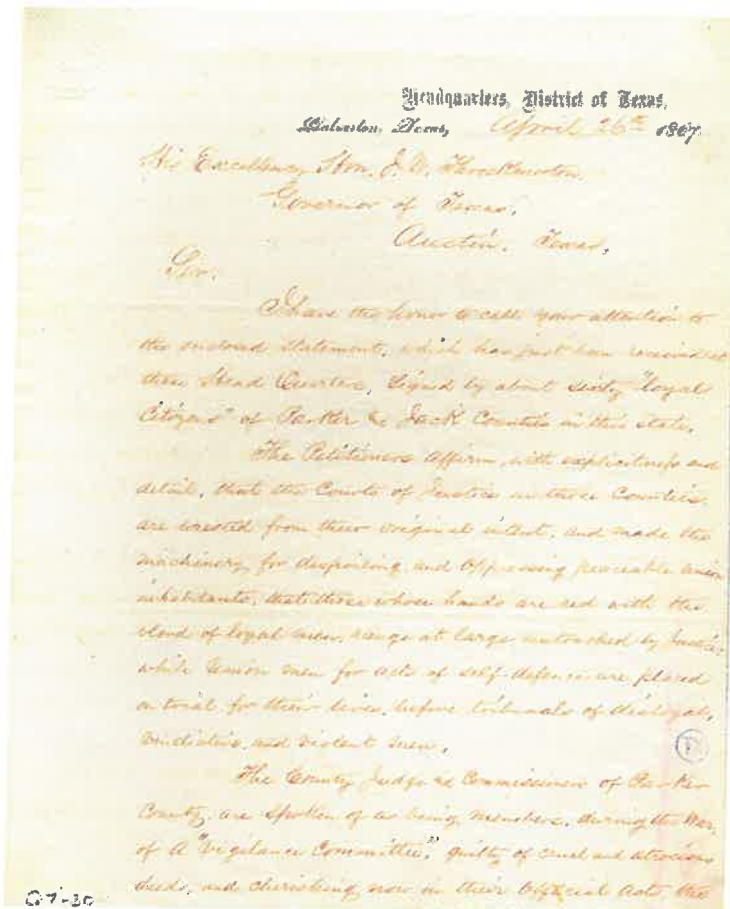 Headquarters, District of Texas,
Galveston, Texas, April 26th 1867.
His Excellency Hon. J. W. Throckmorton.
Governor of Texas,
Austin, Texas,
Sir.
I have the honor to call your attention to
the enclosed statement, which has just been received at
these Head Quarters, signed by about sixty "loyal
Citizens" of Parker & Jack Counties in this state.
The Petitioners affirm, with explicitness and
detail, that the Courts of Justice in those Counties,
are wrested from their original intent, and made the
machinery for despoiling and oppressing peaceable union
inhabitants, that those whose hands are red with the
blood of loyal men, range at large untouched by Justice,
while Union men for acts of self-defence are placed
on trial for their lives, before tribunals of disloyal,
vindictive and violent men.
The County Judge & Commissioners of Parker
County are spoken of as being members, during the War,
of a "Vigilance Committee," guilty of cruel and atrocious
deeds, and cherishing now in their official acts, the